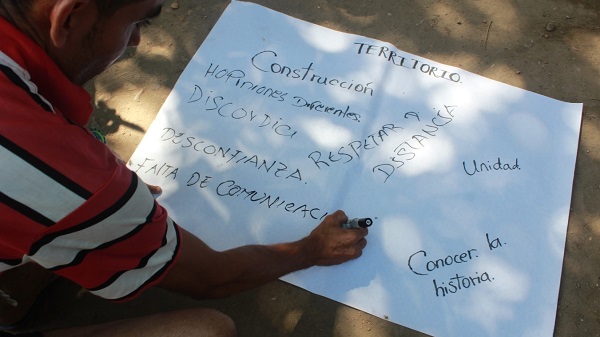 TERRITORIO
Construcción
HOPINIONES Diferentes.
DISCORDIA
RESPETAR A
DISTANCIA
DESCONFIANZA.
Unidad
FALTA DE COMUNICACI
Conocer. la.
historia.